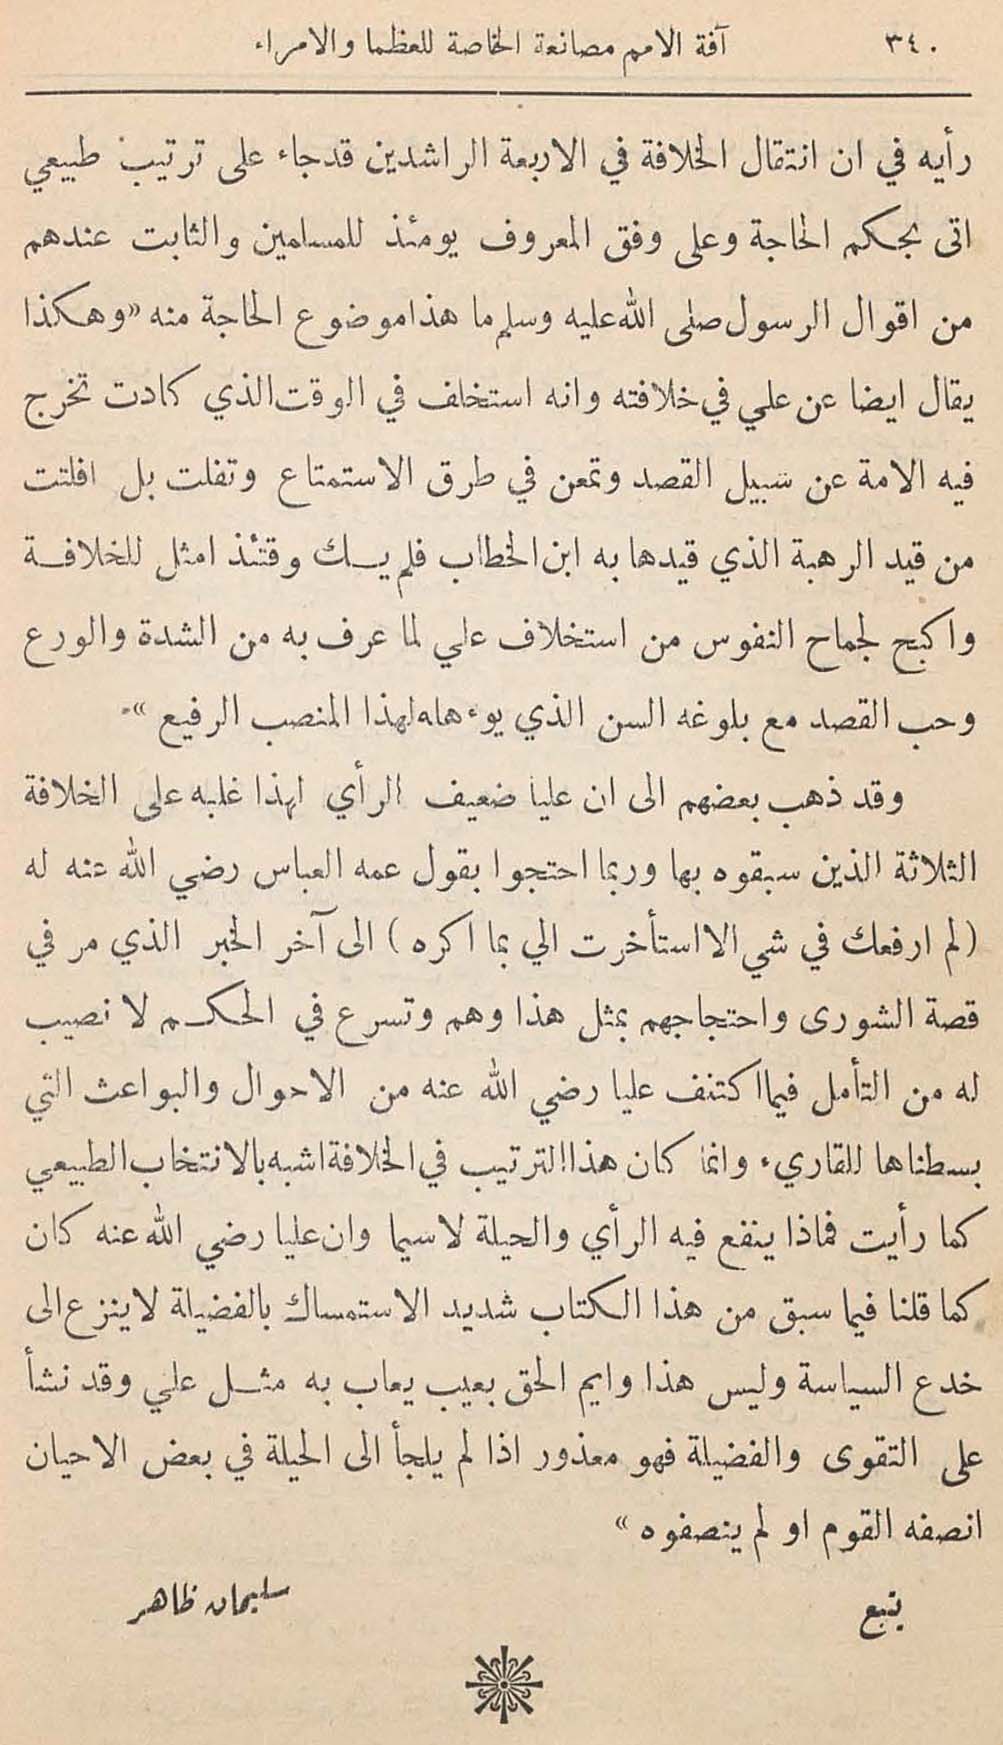 ٣٤٠ آفة الامم مصانعة الخاصة للعظما والامراء
رأيه في ان انتقال الخلافة في الاربعة الراشدين قدجاء على ترتيب طبيعي
اتى بحكم الحاجة وعلى وفق المعروف يومئذ للمسلمين والثابت عندهم
من اقوال الرسول صلى الله عليه وسلم ما هذا موضوع الحاجة منه «وهكذا
يقال ايضا عن علي في خلافته وانه استخلف في الوقت الذي كادت تخرج
فيه الامة عن سبيل القصد وتمعن في طرق الاستمتاع وتفلت بل افلتت
من قيد الرهبة الذي قيدها به ابن الخطاب فلم يك وقتئذ امثل للخلافة
واكبح لجماح النفوس من استخلاف علي لما عرف به من الشدة والورع
وحب القصد مع بلوغه السن الذي يوءهله لهذا المنصب الرفيع»
وقد ذهب بعضهم الى ان عليا ضعيف الرأي لهذا غلبه على الخلافة
الثلاثة الذين سبقوه بها وربما احتجوا بقول عمه العباس رضي الله عنه له
(لم ارفعك في شي الا استأخرت الي بما اكره) الى آخر الخبر الذي مر في
قصة الشورى واحتجاجهم بمثل هذا وهم وتسرع في الحكم لا نصيب
له من التأمل فيما اكتنف عليا رضي الله عنه من الاحوال والبواعث التي
بسطناها للقاريء وانما كان هذا الترتيب في الخلافة اشبه بالانتخاب الطبيعي
كما رأيت فماذا ينفع فيه الرأي والحيلة لاسيما وان عليا رضي الله عنه كان
كما قلنا فيما سبق من هذا الكتاب شديد الاستمساك بالفضيلة لا ينزع الى
خدع السياسة وليس هذا وايم الحق بعيب يعاب به مثل علي وقد نشأ
على التقوى والفضيلة فهو معذور اذا لم يلجأ الى الحيلة في بعض الاحيان
انصفه القوم او لم ينصفوه»
يتبع سليمان ظاهر